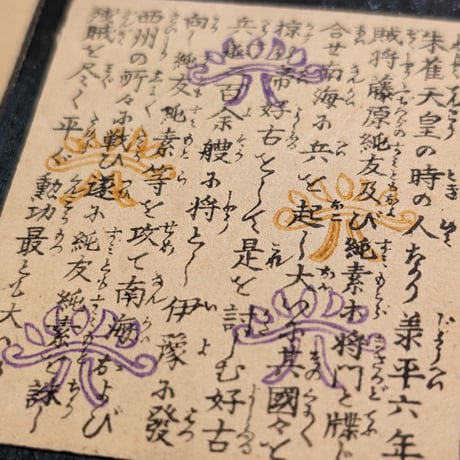 朱雀天皇の時の人なり承平六年
賊将藤原純友及び純素等将門と牒し
合せ南海に兵を起し大いに其國々を
掠む帝好古をして是を討しむ好古
兵百余艘に将とし伊豫に發
向し純友純素等を攻て南海および
西州の所々に戦ひ遂に純友純素を誅し
残賊を尽く平ぐ勲功最とも大い